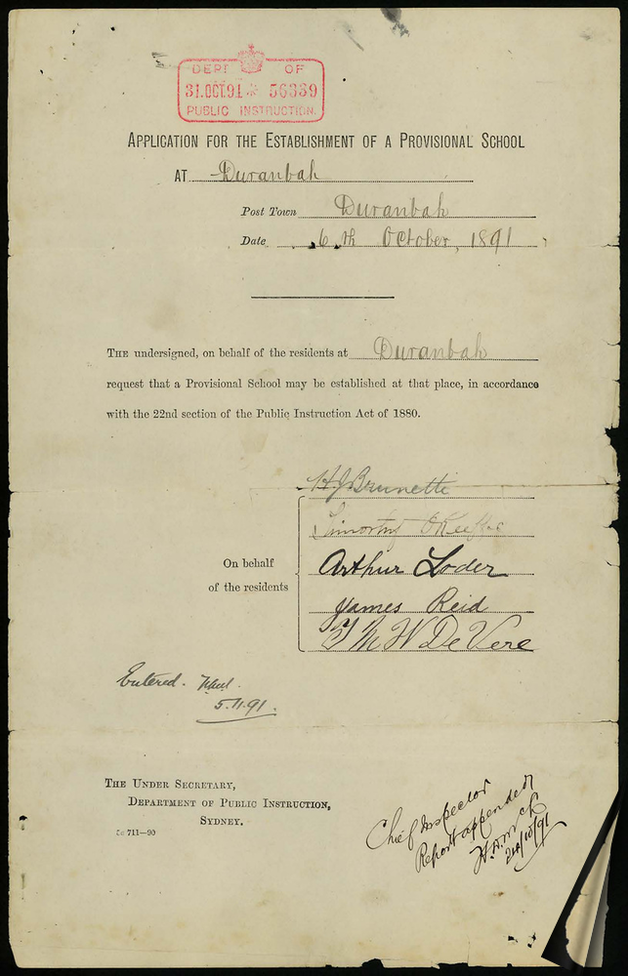 DEPT OF
31.OCT.91 56339
PUBLIC INSTRUCTION.
APPLICATION FOR THE ESTABLISHMENT OF A PROVISIONAL SCHOOL
AT Duranbah
Post Town Duranbah
Date 6th October, 1891
THE undersigned, on behalf of the residents at Duranbah
request that a Provisional School may be established at that place, in accordance
with the 22nd section of the Public Instruction Act of 1880.
H J Brunette
Timothy O'Keeffe
Arthur Loder
On behalf
of the residents
James Reid
T M W De Vere
Entered.
5.11.91.
THE UNDER SECRETARY,
DEPARTMENT OF PUBLIC INSTRUCTION,
SYDNEY.
711—90
Chief Inspector
Report appended
24/10/91